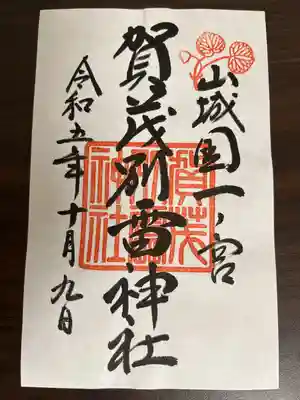 山城国一ノ宮
賀茂別雷神社
令和五年十月九日
賀茂
別雷
神社